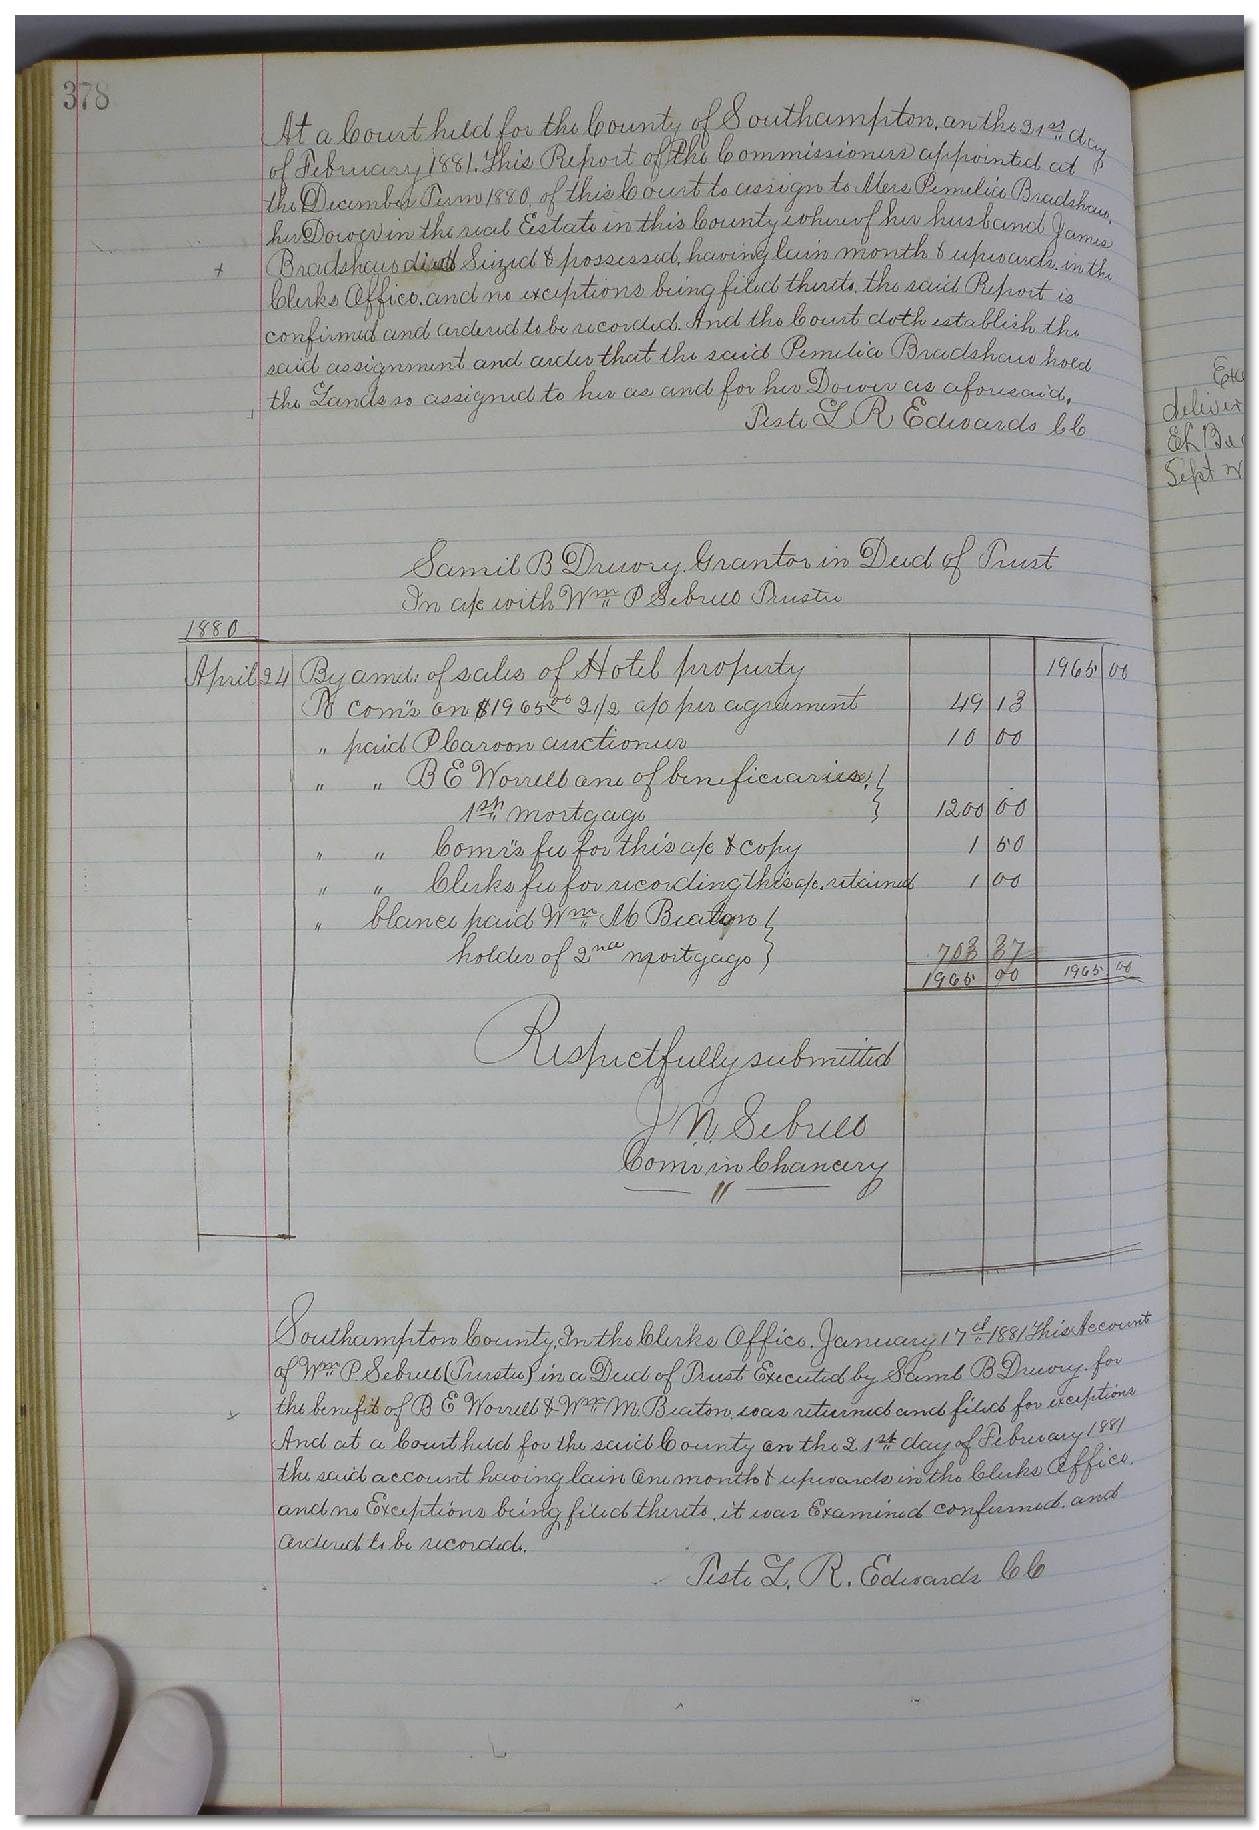 378
At a Court held for the County of Southampton, on the 21st day
of February 1881. This Report of the Commissioners appointed at
the December Term 1880, of this Court to assign to Mrs Pemelia Bradshaw,
her Dower in the real Estate in this County whereof her husband James
Bradshaw died Seized & possessed, having lain month & upwards in the
Clerks Office, and no exceptions being filed thereto, the said Report is
confirmed and ordered to be recorded. And the Court doth establish the
said assignment and order that the said Pemelia Bradshaw hold
the Lands so assigned to her as and for her Dower as aforesaid.
Teste L R Edwards CC
Samil B Drewry Grantor in Deed of Trust
In a/c with Wm P Sebrell Trustee
1880
April 24 By amt. of sales of Hotel property 1965 00
To com's on $1965 00 2 1/2 a/o per agreement 49 13
" paid P Caroon auctioneer 10 00
" " B E Worrell one of beneficiaries,
1st mortgage 1200 00
" " Comr's fee for this a/c & copy 1 50
" " Clerks fee for recording this a/c. retained 1 00
" blance paid Wm M Beaton
holder of 2nd mortgage 703 37
1965 00 1965 00
Respectfully submitted
J N. Sebrell
Comr in Chancery
"
Southampton County, In the Clerks Office. January 17th 1881 This Account
of Wm P Sebrell (Trustee) in a Deed of Trust Executed by Saml B Drewry. for
the benefit of B E Worrell & Wm M. Beaton, was returned and filed for exceptions
And at a Court held for the said County on the 21st day of February 1881
the said account having lain One month & upwards in the Clerks Office.
and no Exceptions being filed thereto, it was Examined confirmed. and
Ordered to be recorded.
Teste L. R. Edwards CC
deliver
Sept